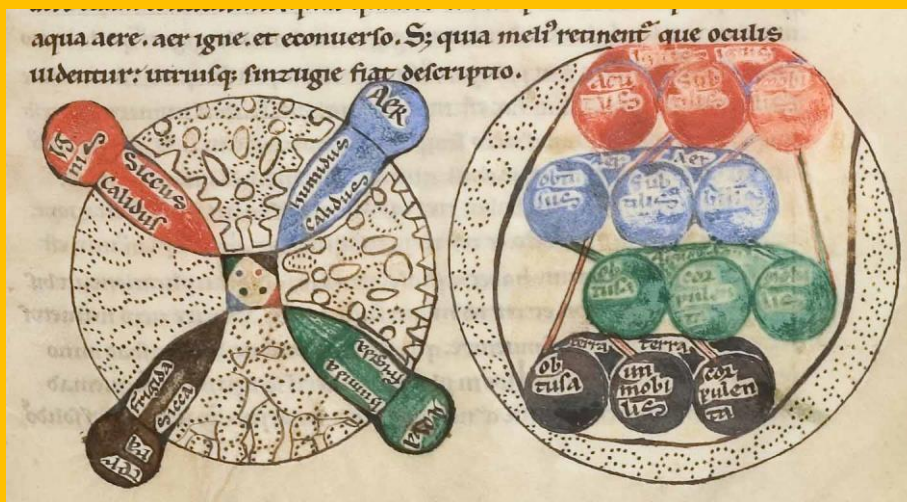 aqua aere. aer igne. et econuerso. S; quia meliꝰ retinent̃ que oculis
uidentur: utriusq; sinzugie fiat descriptio.
Ig
nis
Siccus
Calidus
Aer
humidus
calidus
Frigida
Sicca
ter
ra
humida
frigida
Acu
tus
Sub
tilis
mobi
lis
Aer
obtu
sus
Sub
tilis
mobi
lis
ob
tusa
cor
pulen
ta
mobi
lis
terra
terra
ob
tusa
un
mobi
lis
cor
pulen